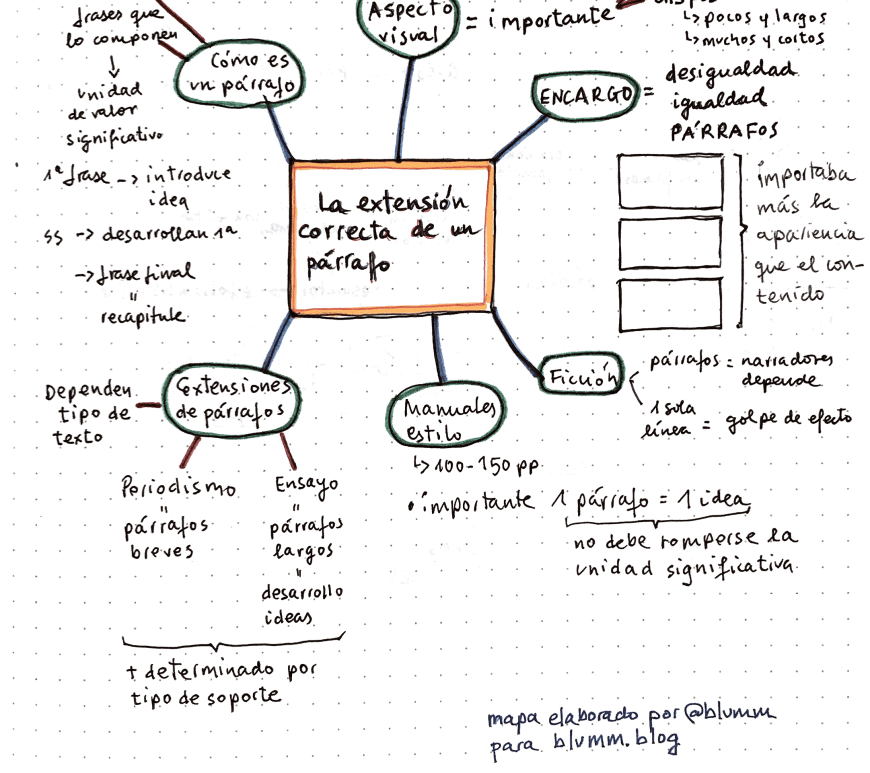 frases que
lo componen
↓
unidad
de valor
significativo
Cómo es
un párrafo
Aspecto
visual
= importante
↳ pocos y largos
↳ muchos y cortos
ENCARGO =
desigualdad
igualdad
PÁRRAFOS
importaba
más la
apariencia
que el con-
tenido
1ª frase -> introduce
idea
ss -> desarrollan 1ª
-> frase final
"
recapitule
La extensión
correcta de un
párrafo
Extensiones
de párrafos
Dependen
tipo de
texto
Periodismo
"
párrafos
breves
Ensayo
"
párrafos
largos
"
desarrollo
ideas
+ determinado por
tipo de soporte
Manuales
estilo
↳ 100-150 pp
• importante 1 párrafo = 1 idea
no debe romperse la
unidad significativa
Ficción
párrafos = narradores
depende
1 sola
línea = golpe de efecto
mapa elaborado por @blumm
para blumm.blog